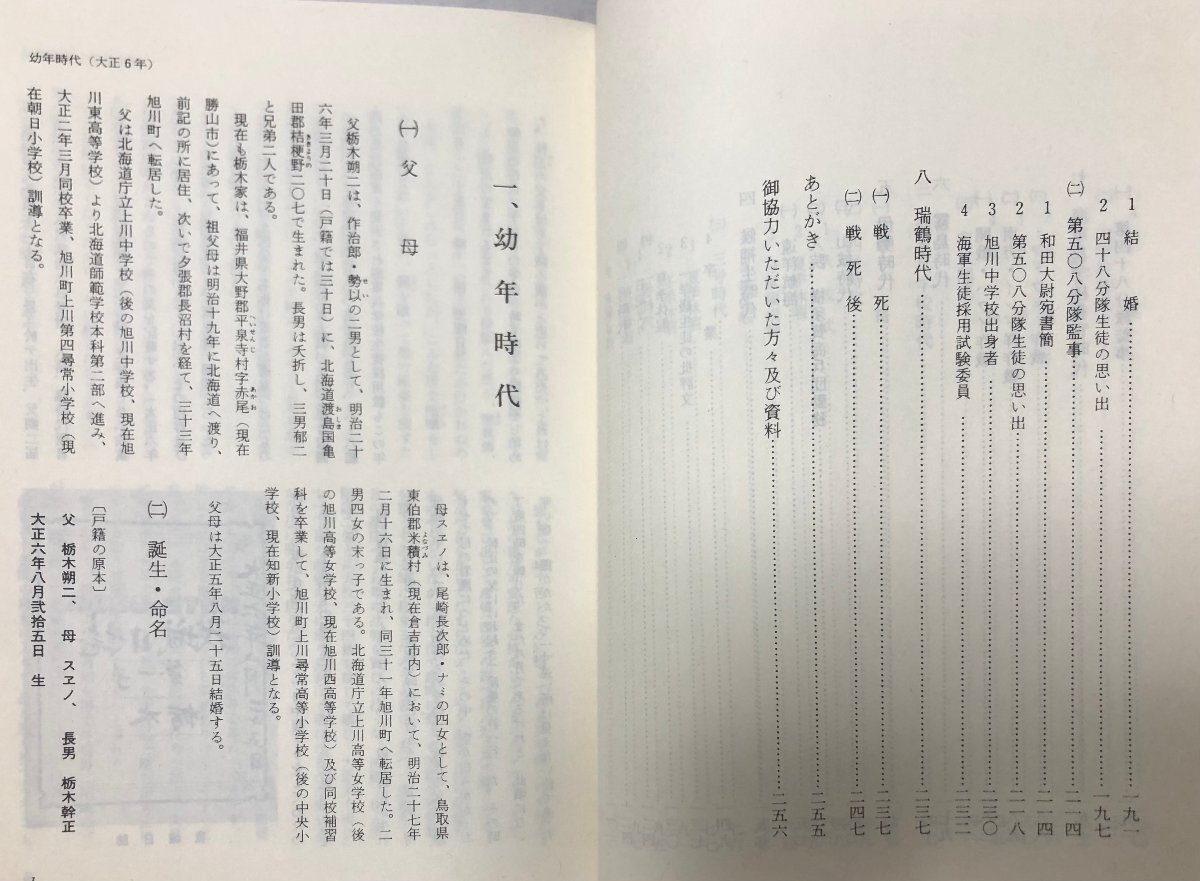 1 結婚……一九一
2 四十八分隊生徒の思い出……一九七
㈡ 第五〇八分隊監事……二一四
1 和田大尉宛書簡……二一四
2 第五〇八分隊生徒の思い出……二一八
3 旭川中学校出身者……二三〇
4 海軍生徒採用試験委員……二三二
八 瑞鶴時代……二三七
㈠ 戦死……二三七
㈡ 戦死後……二四七
あとがき……二五五
御協力いただいた方々及び資料……二五六
幼年時代(大正6年)
一、幼年時代
㈠ 父母
父栃木朔二は、作治郎・勢以の二男として、明治二十
六年三月二十日(戸籍では三十日)に、北海道渡島国亀
田郡桔梗野二〇七で生まれた。長男は夭折し、三男郁二
と兄弟二人である。
現在も栃木家は、福井県大野郡平泉寺村字赤尾(現在
勝山市)にあって、祖父母は明治十九年に北海道へ渡り、
前記の所に居住、次いで夕張郡長沼村を経て、三十三年
旭川町へ転居した。
父は北海道庁立上川中学校(後の旭川中学校、現在旭
川東高等学校)より北海道師範学校本科第二部へ進み、
大正二年三月同校卒業、旭川町上川第四尋常小学校(現
在朝日小学校)訓導となる。
母スヱノは、尾崎長次郎・ナミの四女として、鳥取県
東伯郡米積村(現在倉吉市内)において、明治二十七年
二月十六日に生まれ、同三十一年旭川町へ転居した。二
男四女の末っ子である。北海道庁立上川高等女学校(後
の旭川高等女学校、現在旭川西高等学校)及び同校補習
科を卒業して、旭川町上川尋常高等小学校(後の中央小
学校、現在知新小学校)訓導となる。
父母は大正五年八月二十五日結婚する。
㈡ 誕生・命名
〔戸籍の原本〕
父 栃木朔二、 母 スヱノ、 長男 栃木幹正
大正六年八月弐拾五日 生
1